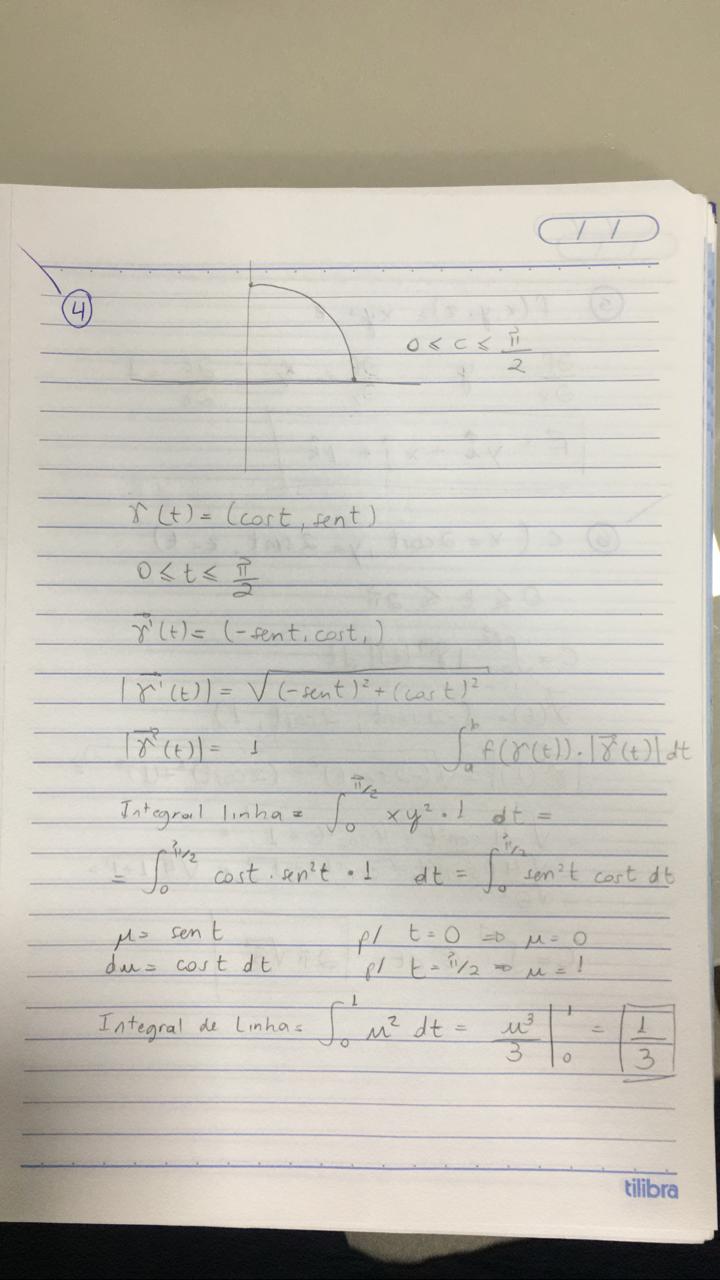 4
0 ≤ c ≤ π/2
γ(t) = (cost, sent)
0 ≤ t ≤ π/2
γ⃗'(t) = (-sent, cost,)
|γ⃗'(t)| = √((-sent)² + (cost)²)
|γ⃗'(t)| = 1 ∫_a^b f(γ(t)) · |γ⃗'(t)| dt
Integral linha = ∫_0^{π/2} xy² · 1 dt =
= ∫_0^{π/2} cost · sen²t · 1 dt = ∫_0^{π/2} sen²t cost dt
μ = sen t p/ t = 0 ⇒ μ = 0
dμ = cost dt p/ t = π/2 ⇒ μ = 1
Integral de linha = ∫_0^1 μ² dt = μ³/3 |_0^1 = 1/3
tilibra